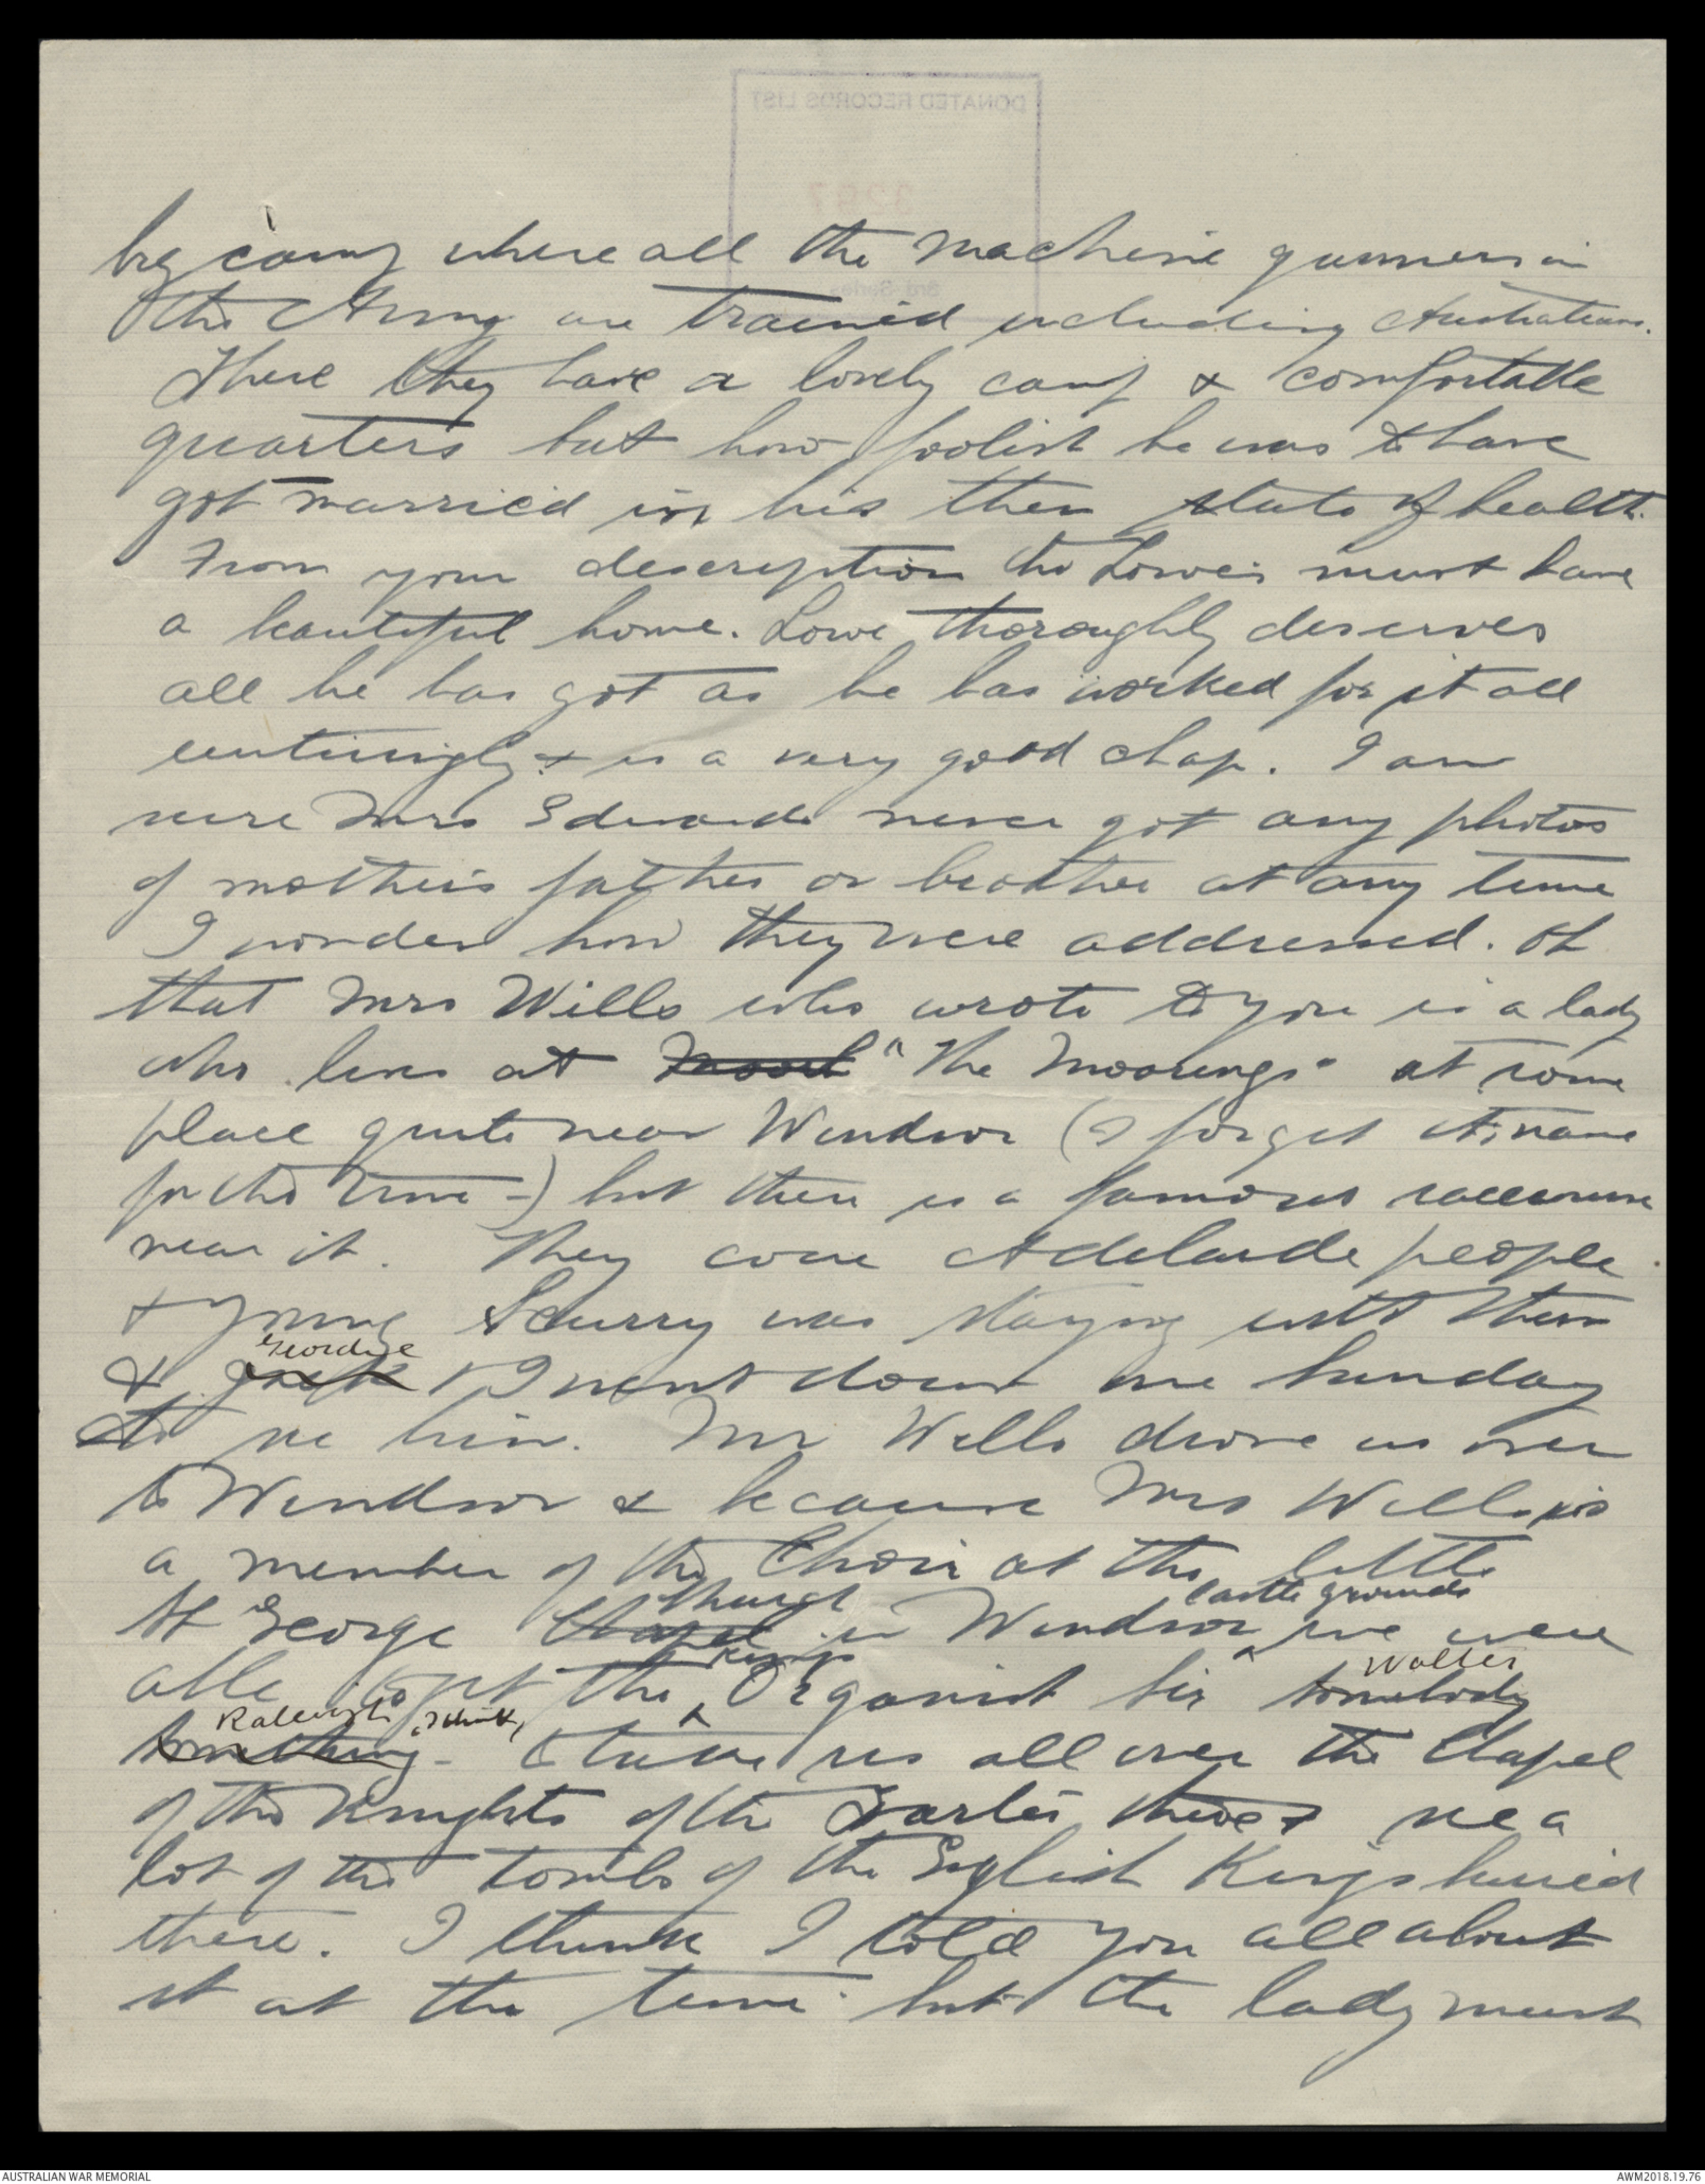 DONATED RECORDS LIST
3287
3rd Series
big camp where all the machine gunners in
the Army are trained including Australians.
There they have a lovely camp & comfortable
quarters but how foolish he was to have
got married in his then state of health.
From your description the Lowe's must have
a beautiful home. Lowe thoroughly deserves
all he has got as he has worked for it all
untiringly & is a very good chap. I am
sure Mrs Edwards never got any photos
of mother's father or brother at any time
I wonder how they were addressed. Oh
that Mrs Wills who wrote to you is a lady
who lives at "The Moorings" at some
place quite near Windsor (I forget its name
for the time -) but there is a famous racecourse
near it. They are Adelaide people.
& young Scurry was staying with them
Geordie
& Jack & I went down one Sunday
to see him. Mr Wills drove us over
to Windsor & because Mrs Wills is
a member of the Choir at the little
Church castle grounds
St George Chapel in Windsor we were
Kings Walter
able to get the Organist Sir somebody
Raleigh, I think,
something - to take us all over the Chapel
of the Knights of the Garter there & see a
lot of the tombs of the English Kings buried
there. I think I told you all about
it at the time but the lady must
AUSTRALIAN WAR MEMORIAL
AWM2018.19.76